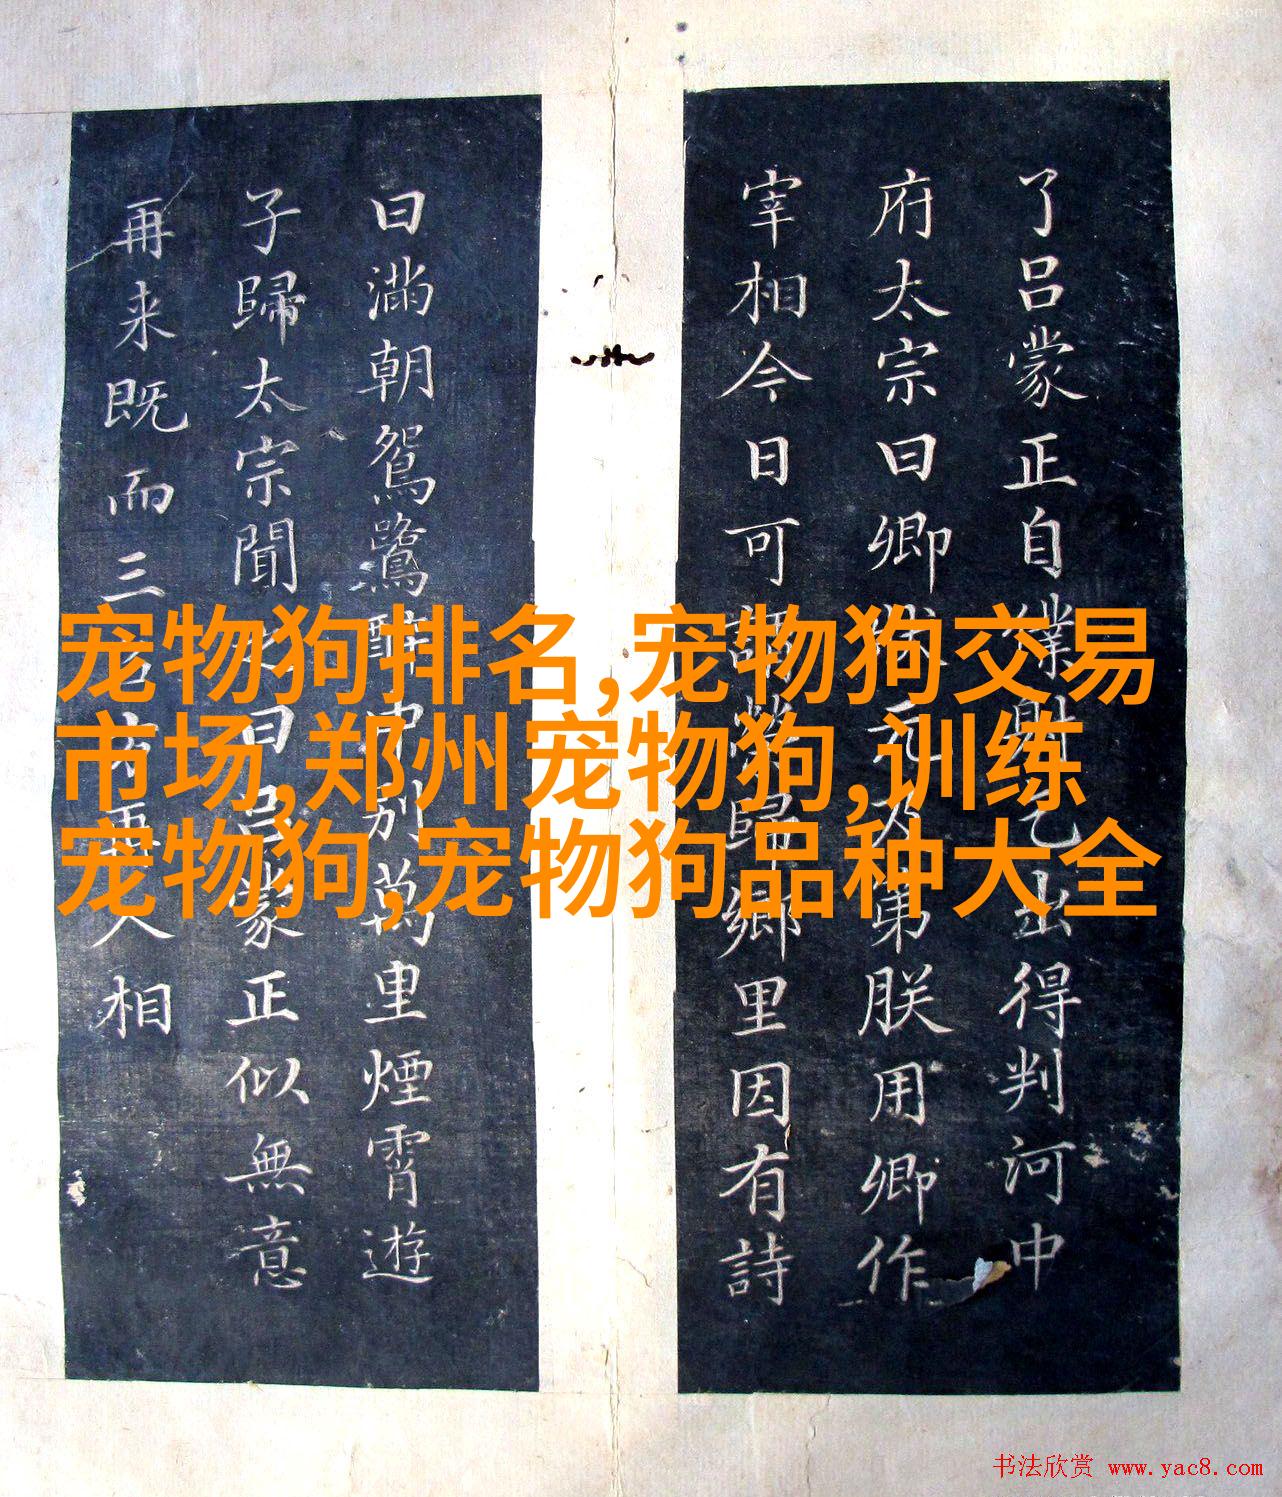 了呂蒙正自僕射乞出得判河中
府太宗曰卿元及第朕用卿作
宰相今日可謂榮歸鄉里因有詩
曰滿朝鴛鷺醉中別萬里煙霄遊
子歸太宗聞之曰呂蒙正似無意
再来既而三方再入相
宠物狗排名,宠物狗交易
市场,郑州宠物狗,训练
宠物狗,宠物狗品种大全
书法欣赏 www.yac8.com